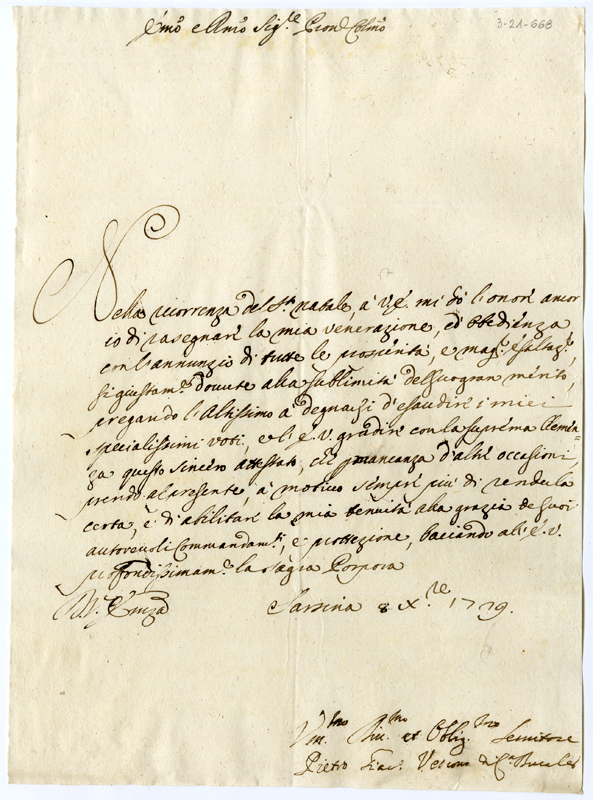 3-21-668
Em̃o e Rm̃o Sig.re Pron̄ Colm̃o
Nella ricorrenza del S.to natale, à V.E. mi dò l'onore ancor
io di rasegnare la mia venerazione, ed obedienza
con l'annunzio di tutte le prosperità, e mag.ri esaltaz.i
si giustam.te dovute alla sublimità del suo gran mérito,
pregando l'Altissimo à degnarsi d'esaudire i miei
specialissimi voti, e l'E.V. gradire con la suprema Clemen=
za questo sincero attestato, che mancanza d'altre occasioni
prendo al presente, à motivo sempre più di renderla
certa, e d'abilitare la mia tenuità alla grazia de suoi
autorevoli Commandam.ti, e protezione, baciando all'E.V.
profondissimam.te la Sagra Porpora
Sarsina 8 X.re 1729.
Um.mo Div.mo et Oblig.mo Servitore
Pietro Vescovo di